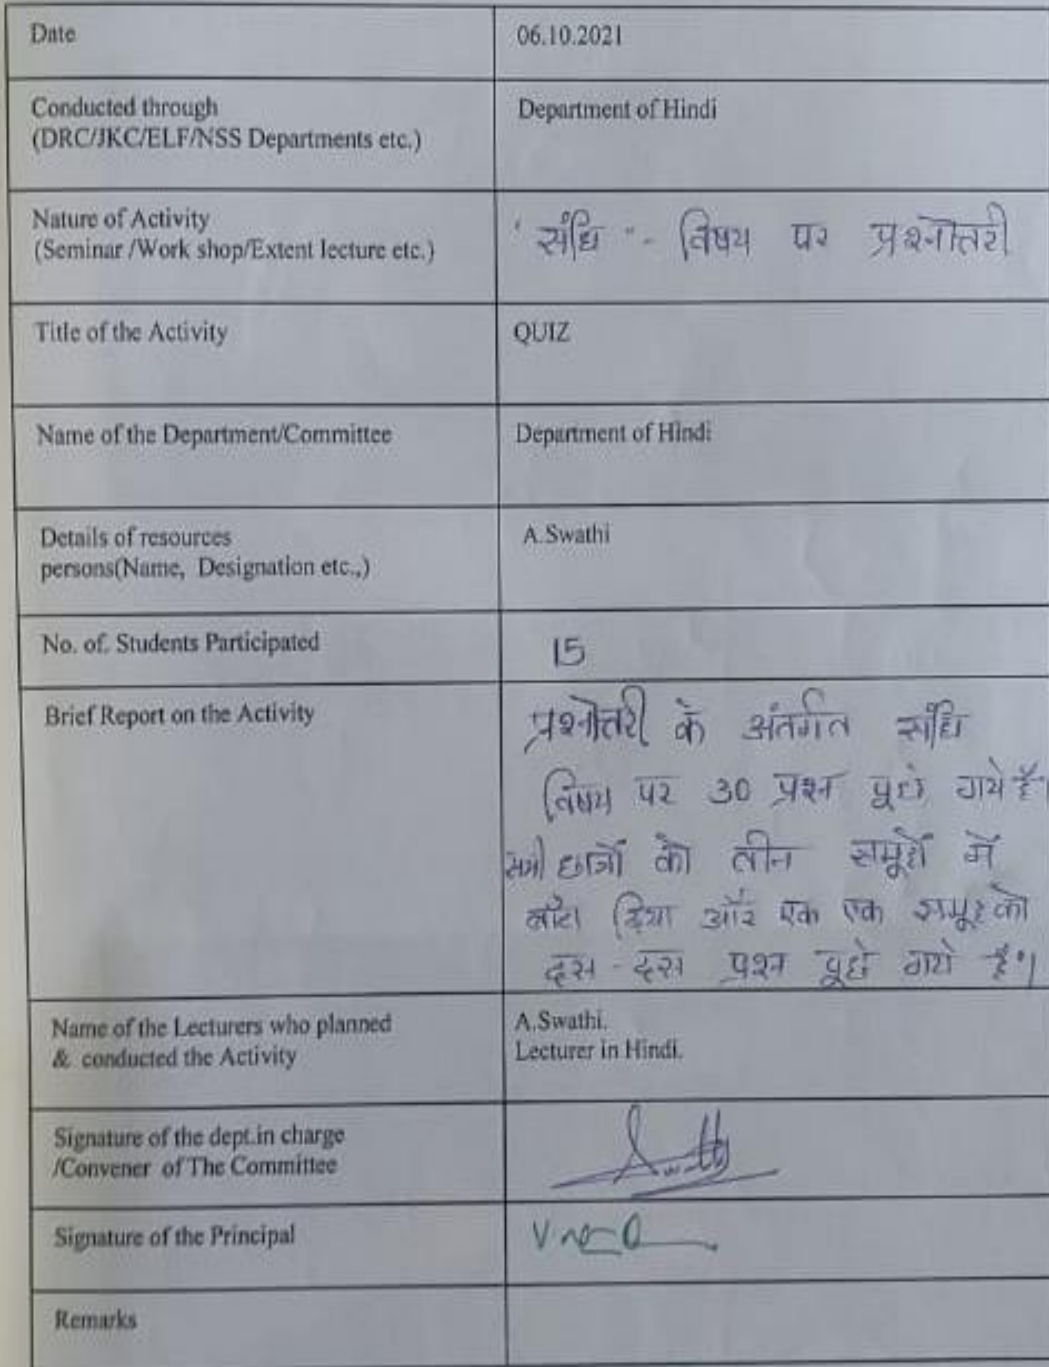 Date 06.10.2021
Conducted through Department of Hindi
(DRC/JKC/ELF/NSS Departments etc.)
Nature of Activity
(Seminar /Work shop/Extent lecture etc.) ' संधि " - विषय पर प्रश्नोत्तरी
Title of the Activity QUIZ
Name of the Department/Committee Department of Hindi
Details of resources A.Swathi
persons(Name, Designation etc.,)
No. of. Students Participated 15
Brief Report on the Activity प्रश्नोत्तरी के अंतर्गत संधि
विषय पर 30 प्रश्न पूछे गये हैं।
सभी छात्रों को तीन समूहों में
बाँटा दिया और एक एक समूह को
दस - दस प्रश्न पूछे गये हैं।
Name of the Lecturers who planned A.Swathi.
& conducted the Activity Lecturer in Hindi.
Signature of the dept.in charge
/Convener of The Committee Swathi
Signature of the Principal
Remarks